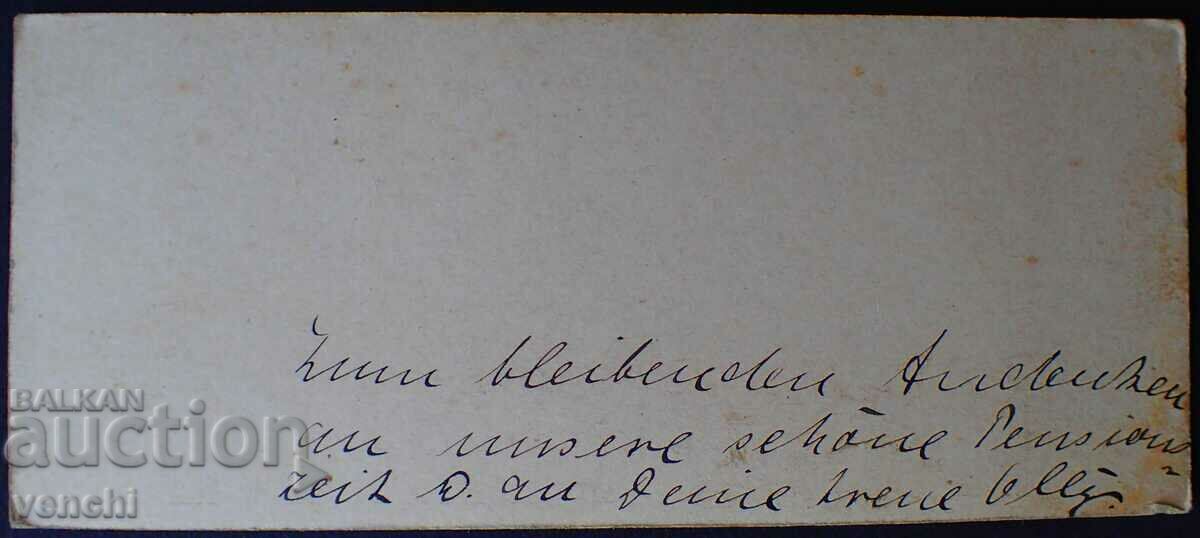 Zum bleibenden Andenken
an unsere schöne Pensions=
zeit u. an Deine treue Olly.
BALKAN
auction
venchi